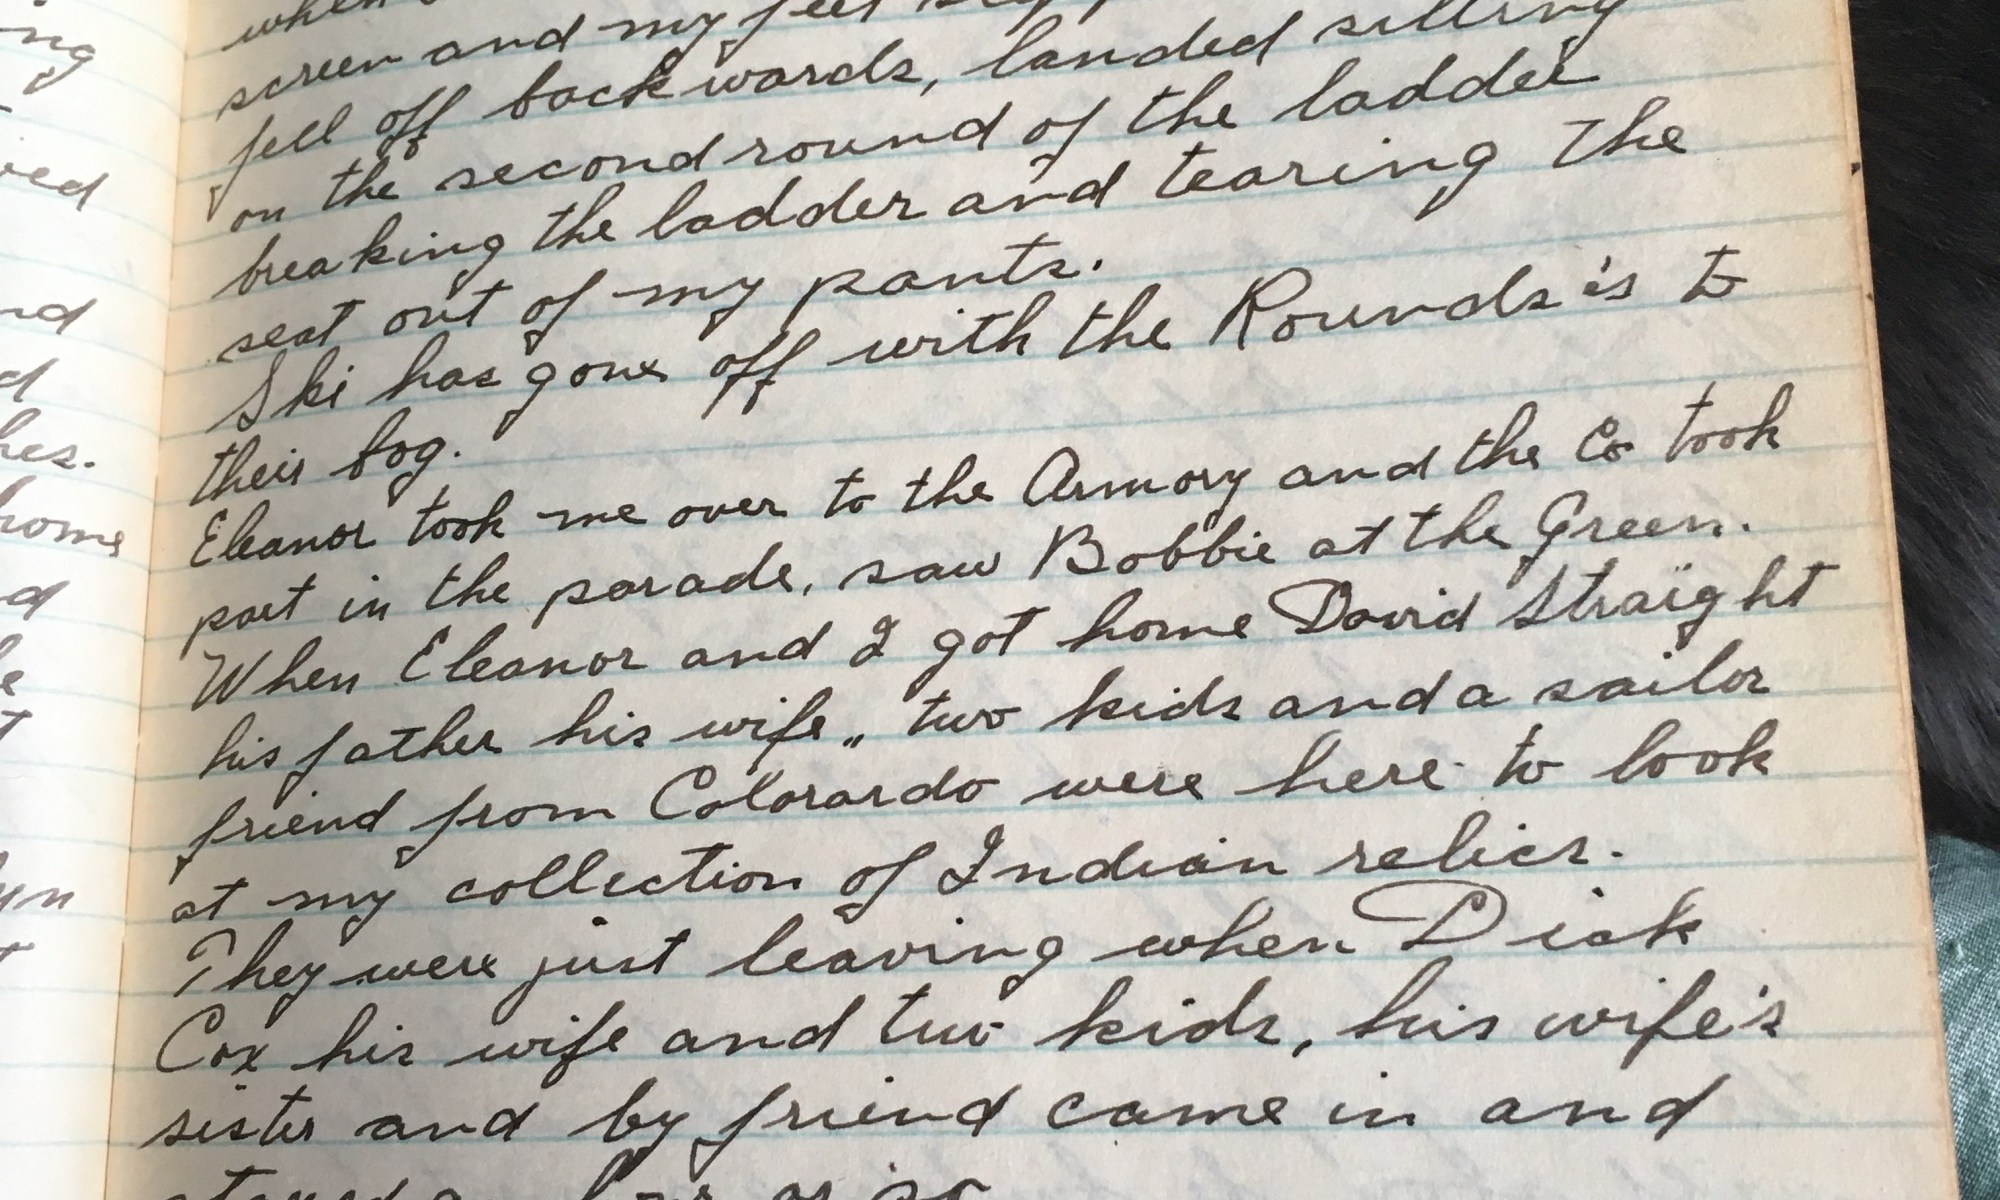 ing
ved
nd
d
hes.
home
d
yn
screen and my feet
fell off backwards, landed sitting
on the second round of the ladder
breaking the ladder and tearing the
seat out of my pants.
Ski has gone off with the Rounds is to
their bog.
Eleanor took me over to the Armory and the Co took
part in the parade, saw Bobbie at the Green.
When Eleanor and I got home David Straight
his father his wife,, two kids and a sailor
friend from Colorardo were here to look
at my collection of Indian relics.
They were just leaving when Dick
Cox his wife and two kids, his wife's
sister and by friend came in and
or so